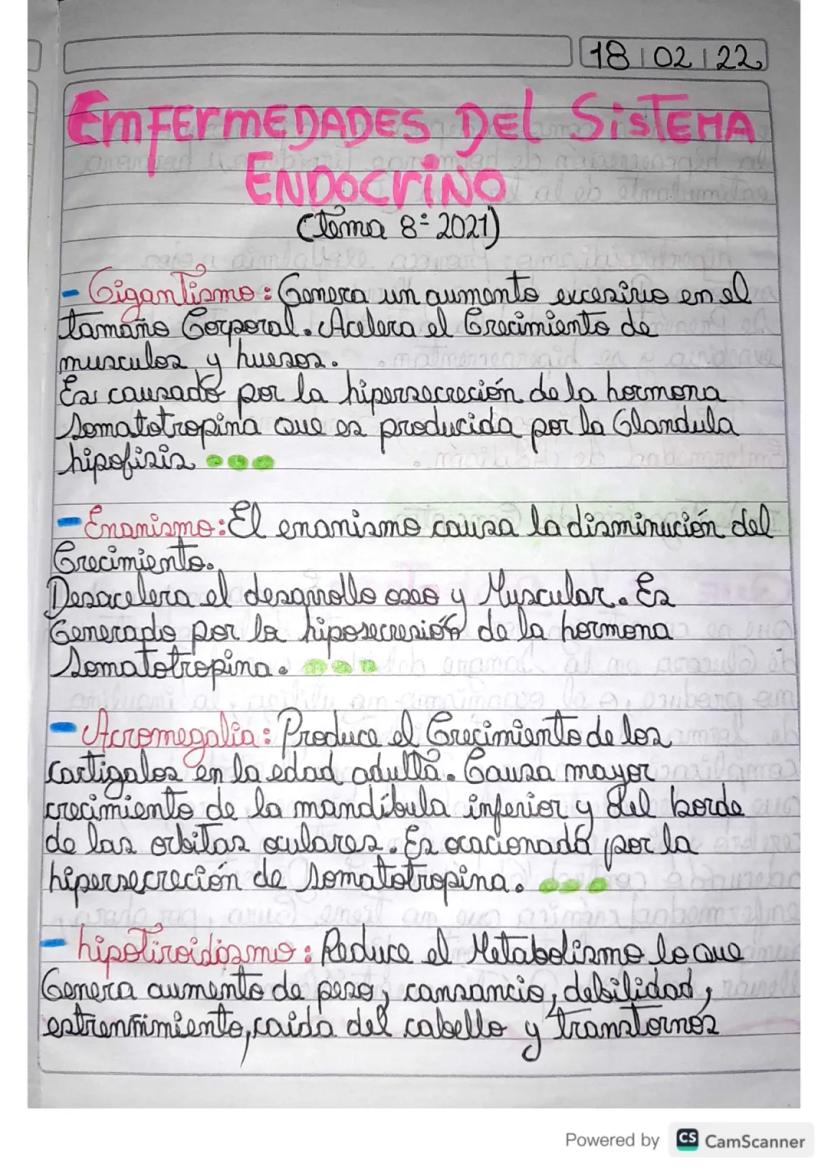 18 02 22
EmFErmEDADES DEl SiSTEMA
ENDOCriNO
(tema 8º 2021)
- Gigantismo: Genera un aumento excesivo en el
tamaño Corporal. Acelera el Crecimiento de
musculos y huesos.
Es causado por la hipersecreción de la hormona
Somatotropina que es producida por la Glandula
hipofisis
- Enanismo: El enanismo causa la disminución del
Crecimiento.
Desacelera el desarrollo oseo y Muscular. Es
Generado por la hiposecresión de la hormona
Somatotropina.
- Acromegalia: Produce el Crecimiento de los
cartigalos en la edad adulta. Causa mayor
crecimiento de la mandíbula inferior y del borde
de las orbitas oculares. Es ocacionada por la
hipersecreción de somatotropina.
- hipotiroidismo: Reduce el Metabolismo lo que
Genera aumento de peso, cansancio, debilidad,
estrenñimiento, caida del cabello y transtornos
Powered by CS CamScanner